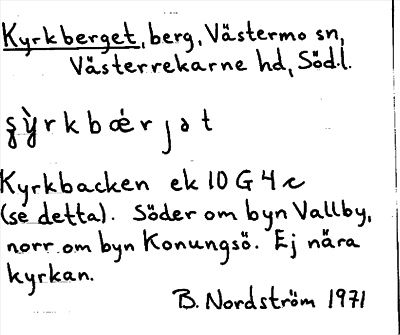 Kyrkberget, berg, Västermo sn,
Västerrekarne hd, Södl.
şỳrkbǿrȷət
Kyrkbacken ek 10 G 4 c
(se detta). Söder om byn Vallby,
norr om byn Konungsö. Ej nära
kyrkan.
B. Nordström 1971